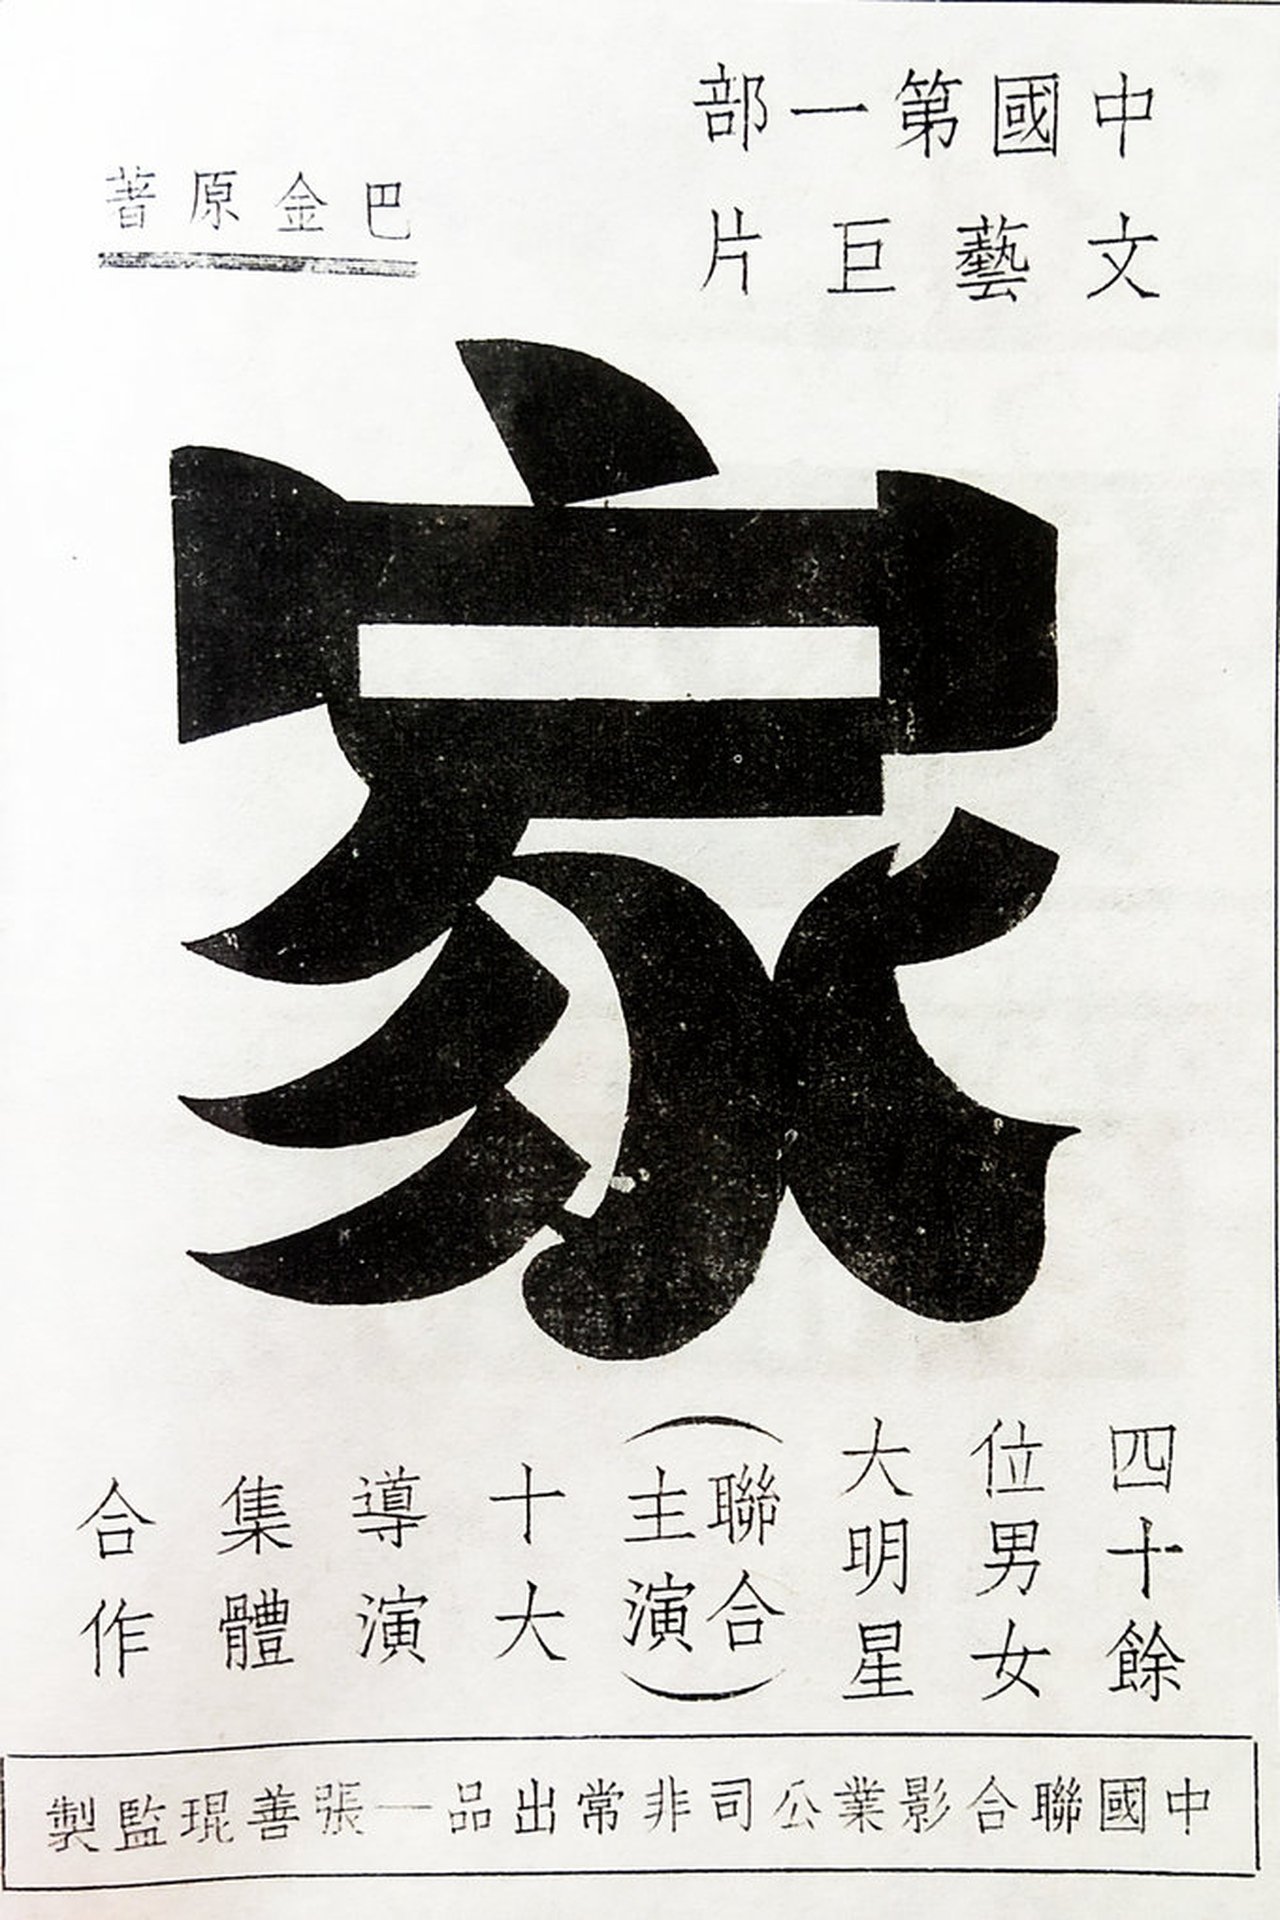 中國第一部
文藝巨片
巴金原著
家
四十餘
位男女
大明星
（聯合
主演）
十大
導演
集體
合作
中國聯合影業公司非常出品—張善琨監製